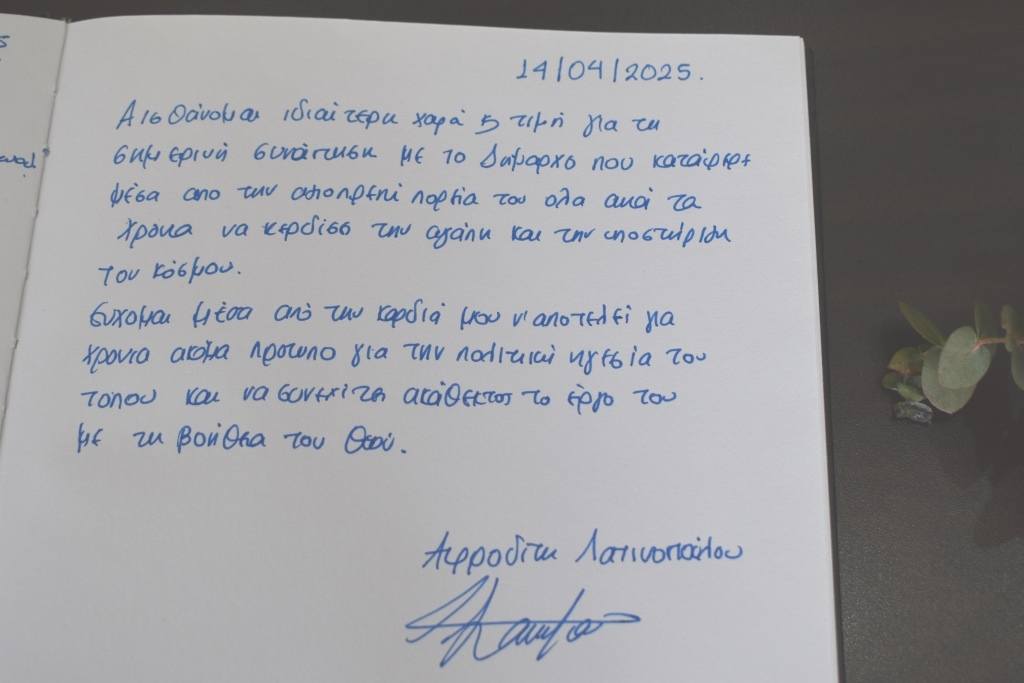 14/04/2025.
Αισθάνομαι ιδιαίτερη χαρά & τιμή για τη
σημερινή συνάντηση με το Δήμαρχο που κατάφερε
μέσα απο την πορεία του ολα αυτά τα
χρονια να κερδίσει την αγάπη και την υποστήριξη
του κόσμου.
Ευχομαι μέσα από την καρδιά μου ν'αποτελεί για
χρονια ακομα προτυπο για την πολιτική ηγεσία του
τοπου και να συνεχίσει ακάθεκτος το έργο του
με τη βοήθεια του Θεού.
Αφροδίτη Λατινοπούλου